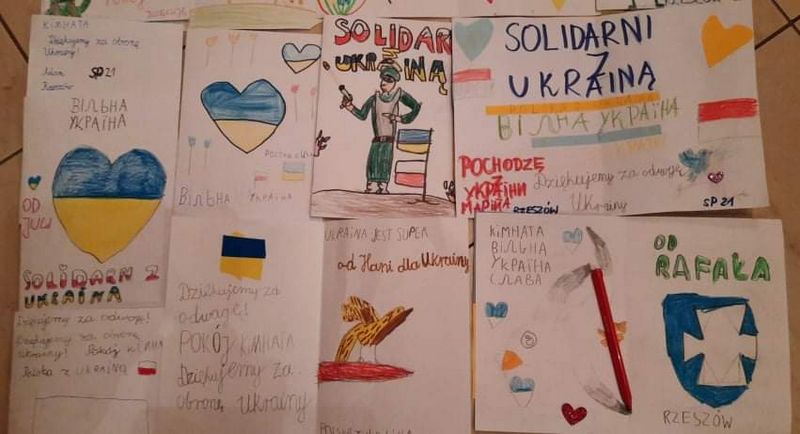 КІМНАТА
Dziękujemy za obronę
Ukrainy!
Adam SP 21
Rzeszów
ВІЛЬНА
УКРАЇНА
OD
JULI
SOLIDARNI Z
UKRAINĄ
Dziękujemy za odwagę!
Dziękujemy za obronę
Ukrainy! Pokój
Polska z UKRAINĄ
ВІЛЬНА УКРАЇНА
SOLIDAR
UKRAINĄ
SOLIDARNI
Z
UKRAINĄ
ВІЛНА УКРАЇНА
POCHODZĘ
Z
УКРАЇНИ
МАРІНА
RZESZÓW
Dziękujemy za odwagę
Ukrainy
SP 21
Dziękujemy za
odwagę!
POKÓJ КІМНАТА
Dziękujemy za
obronę Ukrainy
UKRAINA JEST SUPER
od Hani dla Ukrainy
КІМНАТА
ВІЛЬНА
УКРАЇНА
СЛАВА
OD
RAFAŁA
RZESZÓW